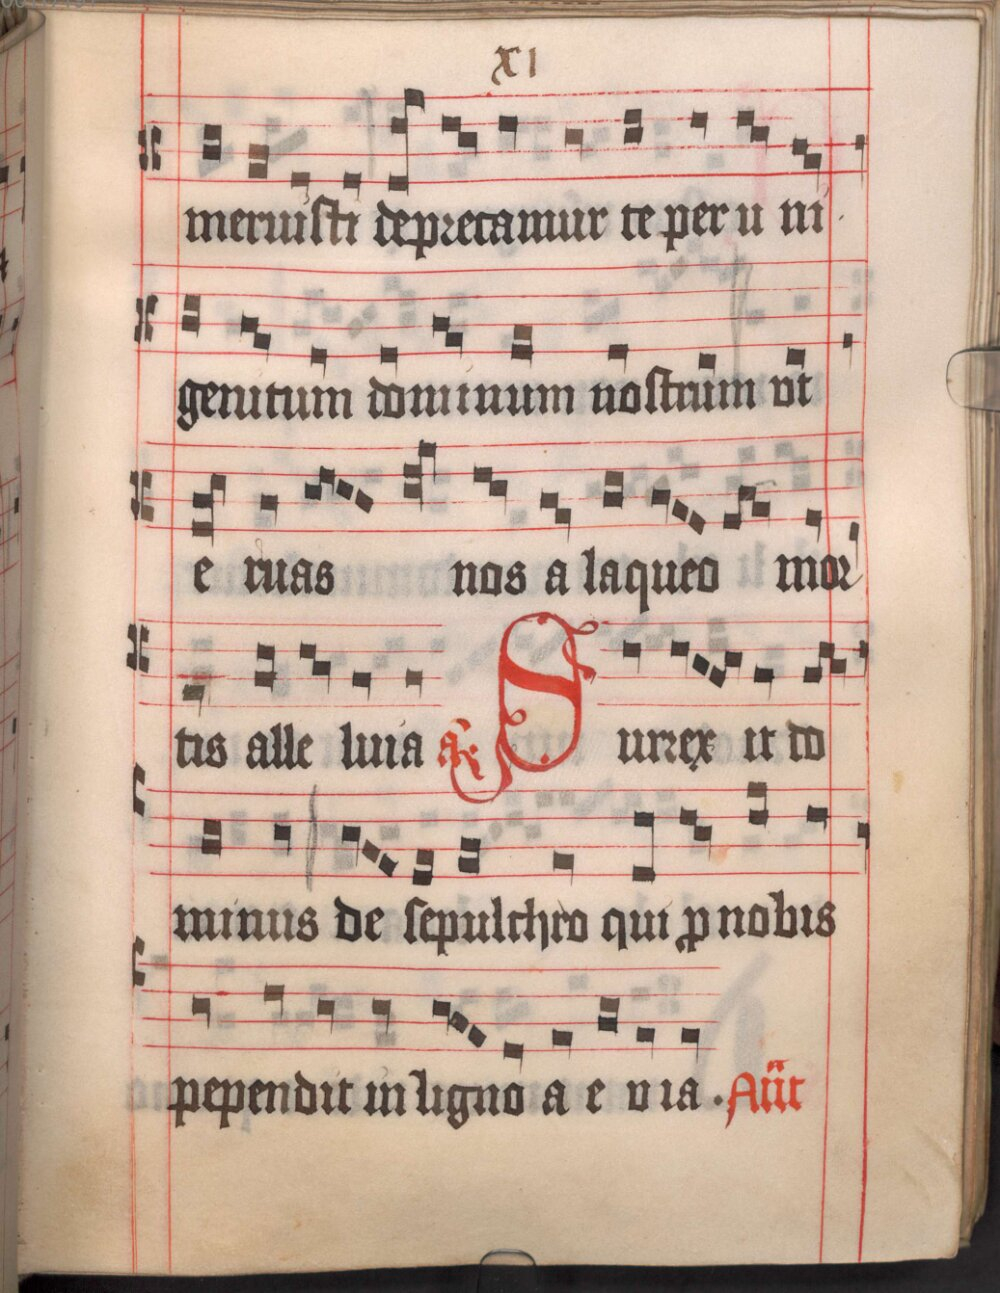 XI
meruisti deprecamur te per u ni
genitum dominum nostrum vt
e ruas nos a laqueo mor
tis alle luia ax S urrex it do
minus de sepulchro qui p nobis
pependit in ligno a e v ia . Atit